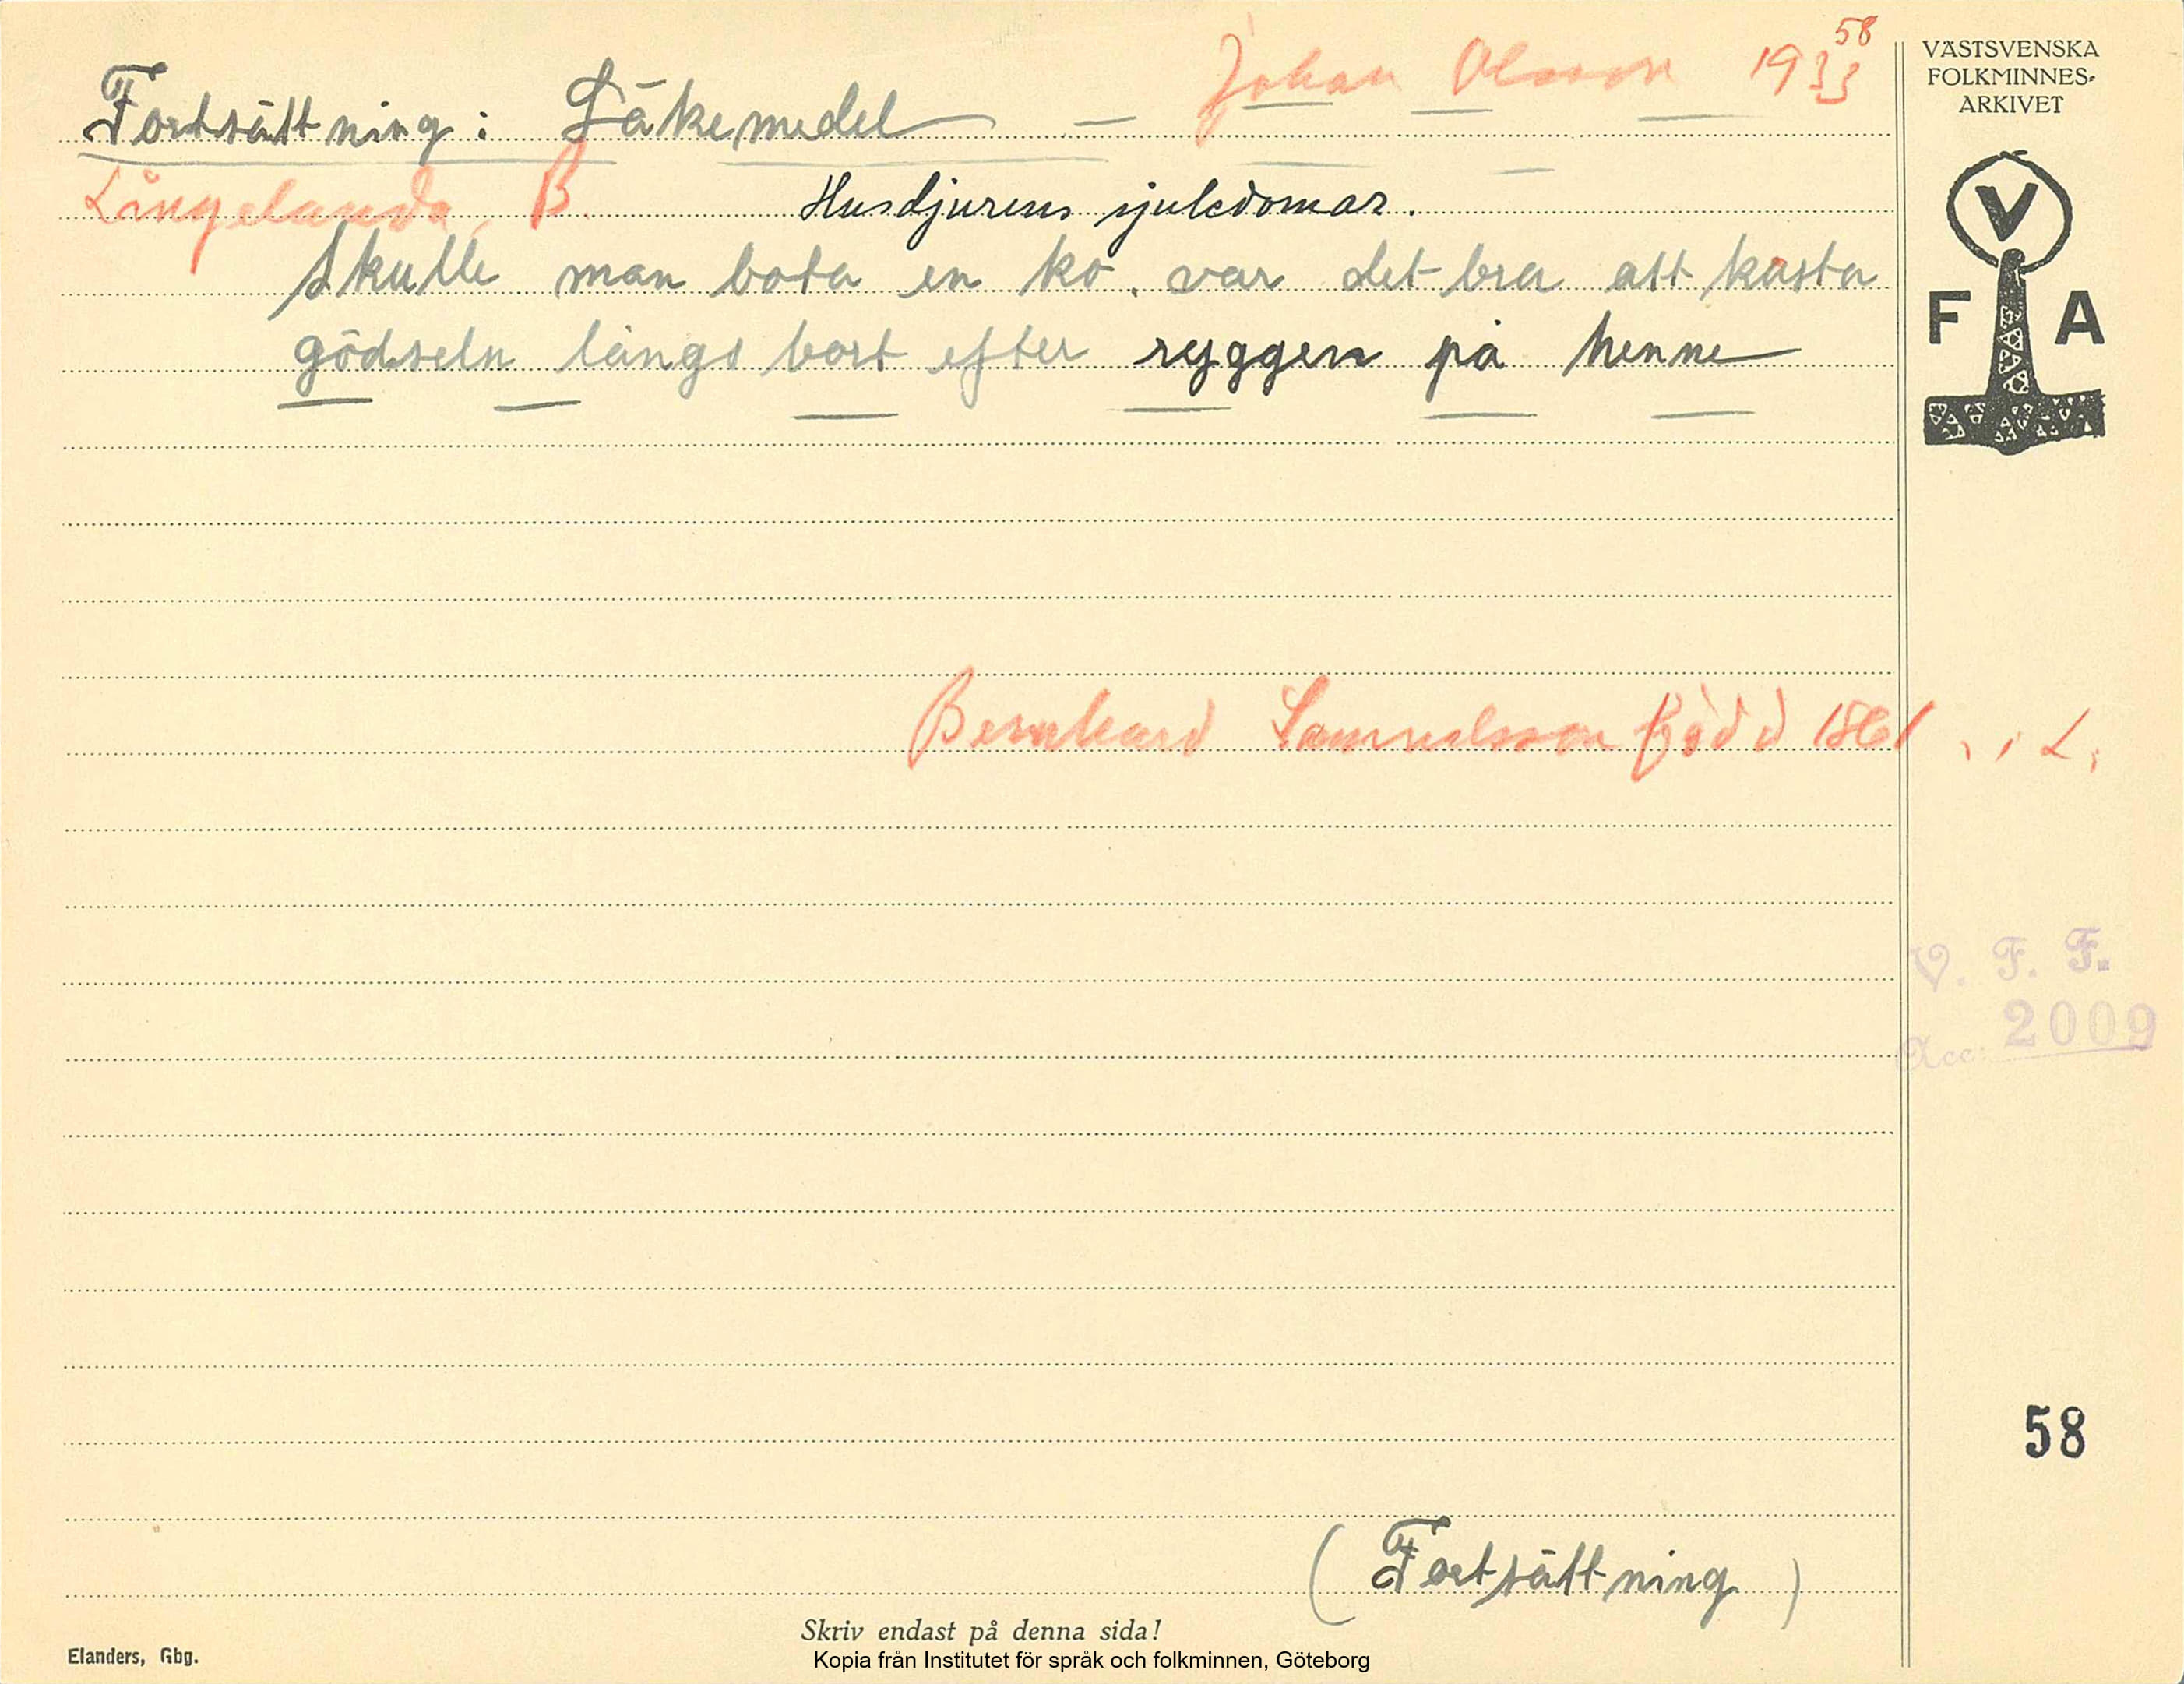 58
Fortsättning: Läkemedel — Johan Olsson 1933
Långelanda, B.
Husdjurens sjukdomar.
Skulle man bota en ko. var det bra att kasta
gödseln längs bort efter ryggen på henne
Bernhard Samuelsson född 1861 i L.
(Fortsättning)
Skriv endast på denna sida!
Elanders, Gbg.
Kopia från Institutet för språk och folkminnen, Göteborg
VÄSTSVENSKA
FOLKMINNES-
ARKIVET
V
F A
V. F. F.
Acc: 2009
58